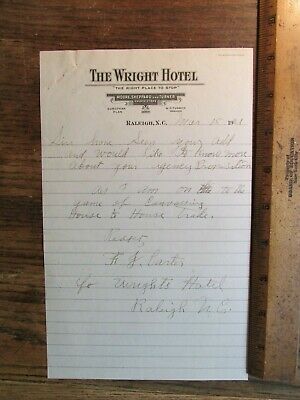 THE WRIGHT HOTEL
"THE RIGHT PLACE TO STOP"
MOORE, SHEPPARD AND TURNER
PROPRIETORS
EUROPEAN
PLAN
W.D. TURNER
MANAGER
RALEIGH, N.C. Mar 15 191
Sirs have seen your add
and would like to know more
about your agency Proposition
as I am on to the
game of Canvassing
House to House trade.
Resp.
F. J. Carter
c/o Wrights Hotel
Raleigh N.C.